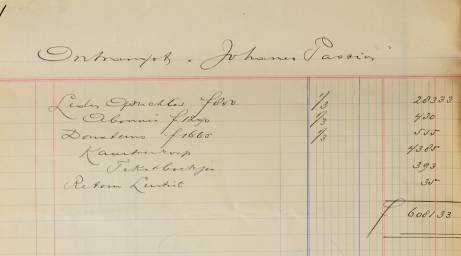 Ontvangst Johannes Passion
Leden f 850 1/3 28333
Abonné f 1290 1/3 430
Donateurs f 1665 1/3 555
Kaartverkoop 4385
Tekstboekjes 393
Retour 35
f 6081.33